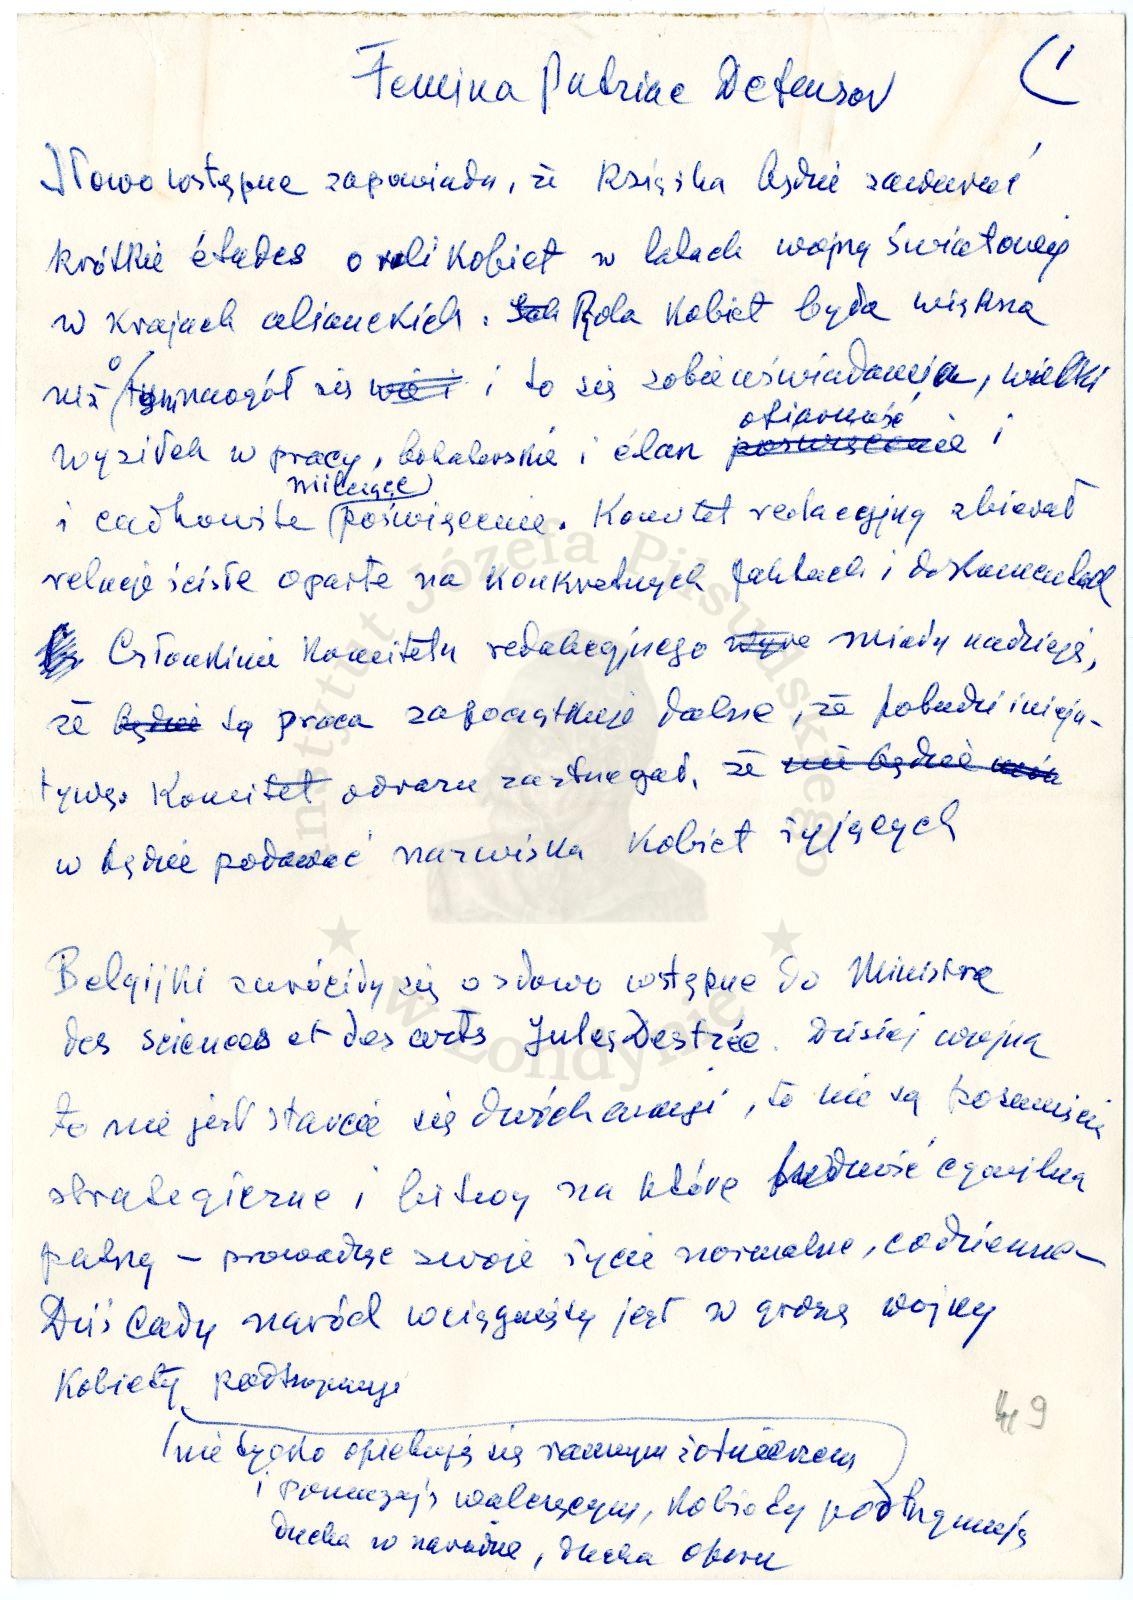 Femina Patriae Defensor
(1
Słowo wstępne zapowiada, że książka będzie zawierać
krótkie études o roli kobiet w latach wojny światowej
w krajach alianckich. Rola kobiet była większa
niż naogół się i to się sobie uświadamia, wielki
ofiarność
wysiłek w pracy, bohaterskie i élan poświęcenie i
milczące
i całkowite (poświęcenie. Komitet redakcyjny zbierał
relacje ściśle oparte na konkretnych faktach i dokumentach
Członkinie Komitetu redakcyjnego miały nadzieję,
że będzie tą praca zapoczątkuje dalsze, że pobudzi inicja-
tywę. Komitet odrazu zastrzegał, że nie będzie
w będzie podawać nazwiska kobiet żyjących
Belgijki zwróciły się o słowo wstępne do Ministra
des sciences et des arts Jules Destrée. Dzisiaj wojna
to nie jest starcie się dwóch armji, to nie są posunięcia
strategiczne i bitwy na które ludność cywilna
patrzy – prowadząc swoje życie normalne, codzienne –
Dziś cały naród wciągnięty jest w grozę wojny
Kobiety podtrzymują
(nie tylko opiekują się rannym żołnierzem)
i pomagają walczącym, kobiety podtrzymują
ducha w narodzie, ducha oporu
49
Instytut Józefa Piłsudskiego
w Londynie